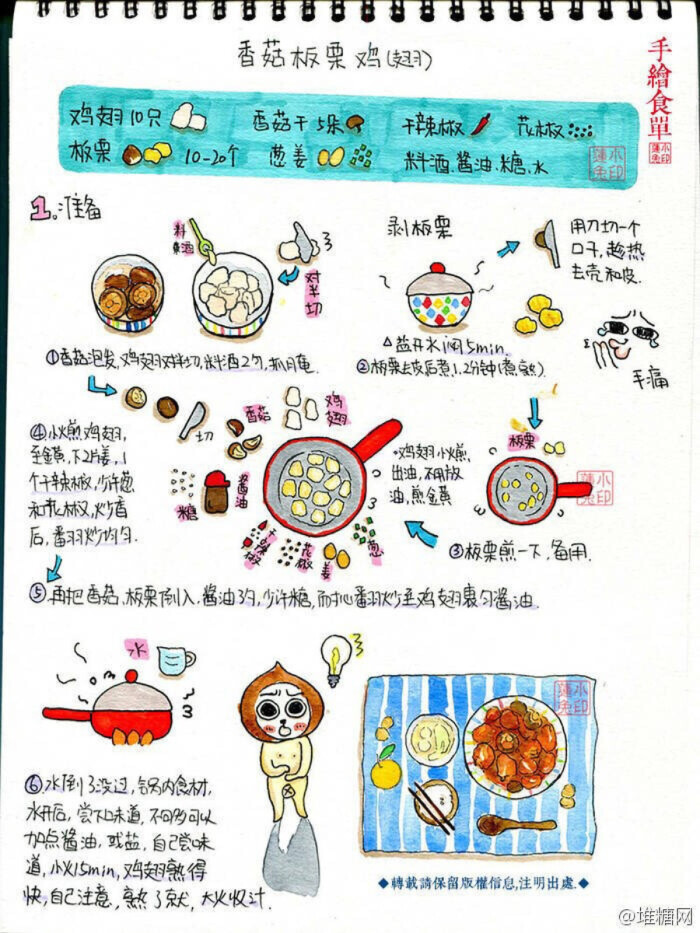 香菇板栗鸡(翅)
手繪食單
蓮小
兔印
鸡翅10只
香菇干5朵
干辣椒
花椒
板栗
10-20个
葱姜
料酒、酱油、糖、水
蓮小
兔印
1.准备
料酒
对半切
剥板栗
用刀切一个
口子,趁热
去壳和皮.
△盐开水闷5min.
手痛
①香菇泡发,鸡翅对半切,料酒2勺,抓腌
②板栗去皮后煮1.2分钟(煮熟)
④小火煎鸡翅,
至金黄,下2片姜,1
个干辣椒,少许葱
和花椒,炒香
后,翻炒均匀.
切
香菇
鸡翅
糖
酱油
干辣椒
花椒
姜
葱
·鸡翅小火煎
出油,不用放
油,煎金黄
板栗
蓮小
兔印
③板栗煎一下,备用.
⑤再把香菇、板栗倒入,酱油3勺,少许糖,耐心翻炒至鸡翅裹匀酱油
水
⑥水倒了没过,锅内食材,
水开后,尝下味道,不够可以
加点酱油,或盐,自己尝味
道,小火15min,鸡翅熟得
快,自己注意,熟了就,大火收汁.
蓮小
兔印
◆轉載請保留版權信息,注明出處.◆
@堆糖网